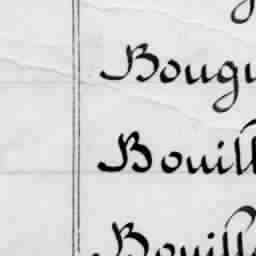 Bougu
Bouill
Bouill